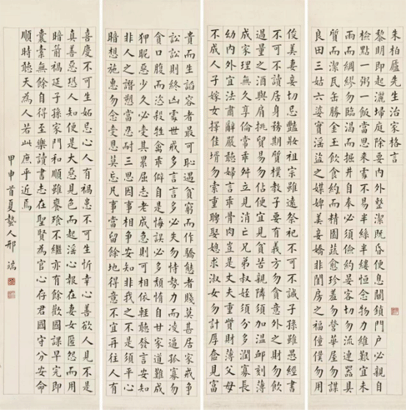 朱柏廬先生治家格言
黎明即起灑掃庭除要內外整潔既昏便息關鎖門戶必親自
檢點一粥一飯當思來處不易半絲半縷恆念物力維艱宜未
雨而綢繆勿臨渴而掘井自奉必須儉約宴客切勿流連器具
質而潔瓦缶勝金玉飲食約而精園蔬愈珍饈勿營華屋勿謀
良田三姑六婆實淫盜之媒婢美妾嬌非閨房之福僮僕勿用
俊美妻妾切忌艷妝祖宗雖遠祭祀不可不誠子孫雖愚經書
不可不讀居身務期質樸教子要有義方勿貪意外之財勿飲
過量之酒與肩挑貿易勿佔便宜見貧苦親鄰須加溫卹刻薄
成家理無久享倫常乖舛立見消亡兄弟叔姪須分多潤寡長
幼內外宜法肅辭嚴聽婦言乖骨肉豈是丈夫重貲財薄父母
不成人子嫁女擇佳壻勿索重聘娶媳求淑女勿計厚奩見富
貴而生諂容者最可恥遇貧窮而作驕態者賤莫甚居家戒爭
訟訟則終凶處世戒多言言多必失勿恃勢力而凌逼孤寡勿
貪口腹而恣殺牲禽乖僻自是悔誤必多頹惰自甘家道難成
狎昵惡少久必受其累屈志老成急則可相依輕聽發言安知
非人之譖愬當忍耐三思因事相爭安知非我之不是須平心
暗想施惠勿念受恩莫忘凡事當留餘地得意不宜再往人有
喜慶不可生妒忌心人有禍患不可生忻幸心善欲人見不是
真善惡恐人知便是大惡見色而起淫心報在妻女匿怨而用
暗箭禍延子孫家門和順雖饔飧不繼亦有餘歡國課早完即
囊橐無餘自得至樂讀書志在聖賢為官心存君國守分安命
順時聽天為人若此庶乎近焉
甲申首夏 人邢端